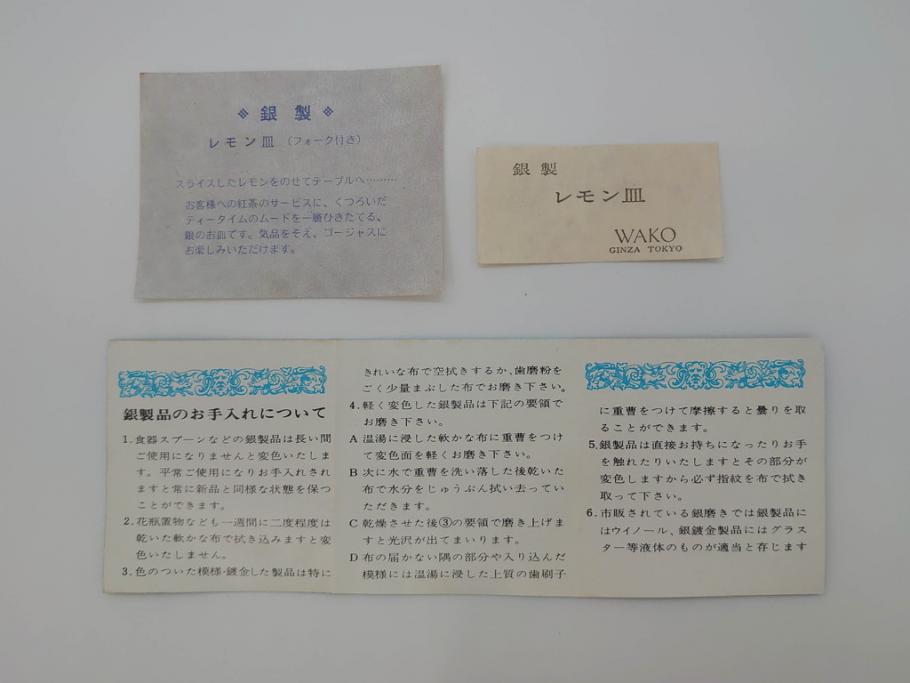 銀製
レモン皿 (フォーク付き)
スライスしたレモンをのせてテーブルへ………
お客様への紅茶のサービスに、くつろいだ
ティータイムのムードを一層ひきたてる、
銀のお皿です。気品をそえ、ゴージャスに
お楽しみいただけます。
銀製
レモン皿
WAKO
GINZA TOKYO
銀製品のお手入れについて
1.食器スプーンなどの銀製品は長い間
ご使用になりませんと変色いたしま
す。平常ご使用になりお手入れされ
ますと常に新品と同様な状態を保つ
ことができます。
2.花瓶置物なども一週間に二度程度は
乾いた軟かな布で拭き込みますと変
色いたしません。
3.色のついた模様・鍍金した製品は特に
きれいな布で空拭きするか、歯磨粉を
ごく少量まぶした布でお磨き下さい。
4.軽く変色した銀製品は下記の要領で
お磨き下さい。
A 温湯に浸した軟かな布に重曹をつけ
て変色面を軽くお磨き下さい。
B 次に水で重曹を洗い落した後乾いた
布で水分をじゅうぶん拭い去ってい
ただきます。
C 乾燥させた後③の要領で磨き上げま
すと光沢が出てまいります。
D 布の届かない隅の部分や入り込んだ
模様には温湯に浸した上質の歯刷子
に重曹をつけて摩擦すると曇りを取
ることができます。
5.銀製品は直接お持ちになったりお手
を触れたりいたしますとその部分が
変色しますから必ず指紋を布で拭き
取って下さい。
6.市販されている銀磨きでは銀製品に
はウイノール、銀鍍金製品にはグラス
ター等液体のものが適当と存じます